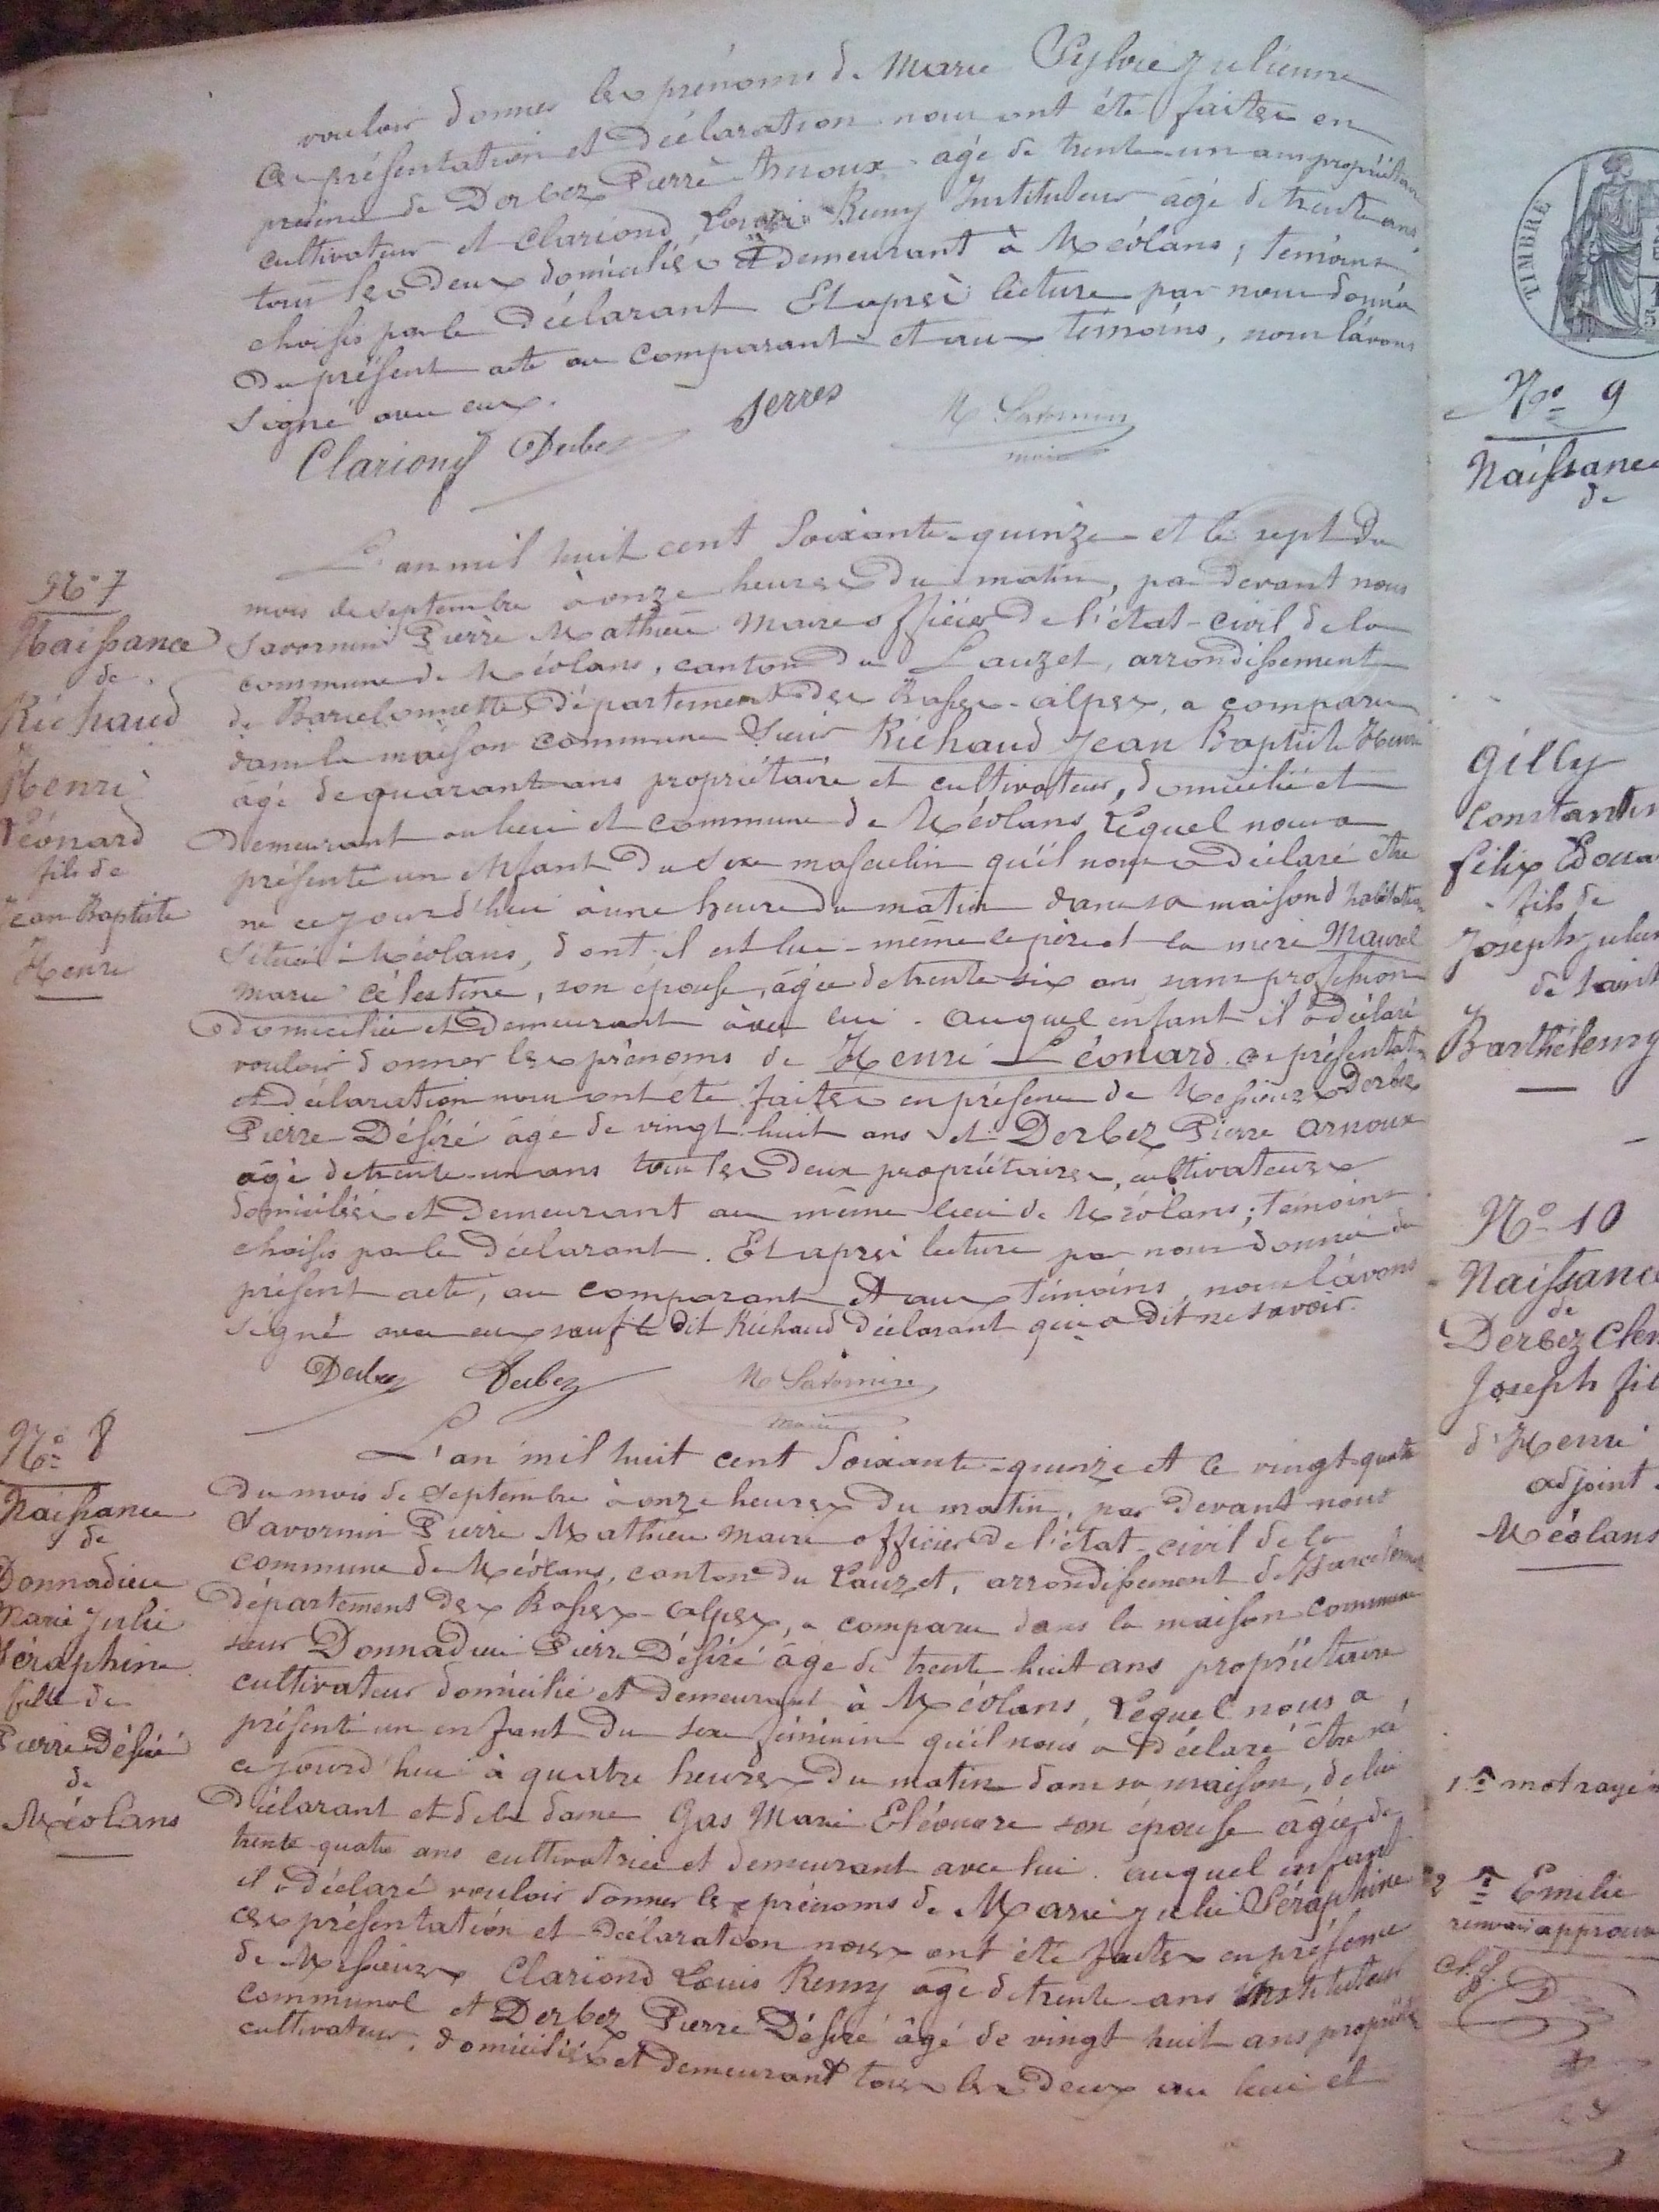 vouloir donner les prénoms de Marie Sylvie Julienne
Ces présentation et déclaration nous ont été faites en
présence de Derbez Pierre Arnoux âgé de trente-un ans propriétaire
cultivateur et Clariond Louis Remy Instituteur âgé de trente ans
tous les deux domiciliés et demeurant à Méolans ; témoins
choisis par le déclarant Et après lecture par nous donnée
Du présent acte au comparant et aux témoins, nous l'avons
signé avec eux.
Clariond Derbez Serres M Savornin
maire
N° 7
Naissance
de
Richaud
Henri
Léonard
fils de
Jean Baptiste
Henri
L'an mil huit cent soixante-quinze et le sept du
mois de septembre à onze heures du matin, par devant nous
Savornin Pierre Mathieu Maire officier de l'état-civil de la
commune de Méolans, canton du Lauzet, arrondissement
de Barcelonnette, département des Basses-alpes, a comparu
dans la maison commune Sieur Richaud Jean Baptiste Henri
âgé de quarante ans propriétaire et cultivateur, domicilié et
demeurant au lieu et commune de Méolans Lequel nous a
présenté un enfant du sexe masculin qu'il nous a déclaré être
né ce jourd'hui à une heure du matin dans sa maison d'habitation
située à Méolans, dont il est lui-même le père et la mère Maurel
Marie Célestine, son épouse, âgée de trente-six ans sans profession
domiciliée et demeurant avec lui. auquel enfant il a déclaré
vouloir donner les prénoms de Henri Léonard. ces présentation
et déclaration nous ont été faites en présence de Messieurs Derbez
Pierre Désiré âgé de vingt-huit ans et Derbez Pierre Arnoux
âgé de trente-un ans tous les deux propriétaires, cultivateurs
domiciliés et demeurant au même lieu de Méolans ; témoins
choisis par le déclarant. Et après lecture par nous donnée du
présent acte, au comparant et aux témoins, nous l'avons
signé avec eux sauf le dit Richaud déclarant qui a dit ne savoir.
Derbez Derbez M Savornin
maire
N° 8
Naissance
de
Donnadieu
Marie Julie
Séraphine
fille de
Pierre Désiré
de
Méolans
L'an mil huit cent soixante-quinze et le vingt-quatre
du mois de septembre à onze heures du matin, par devant nous
Savornin Pierre Mathieu maire officier de l'état-civil de la
commune de Méolans, canton du Lauzet, arrondissement de Barcelonnette
département des Basses-alpes, a comparu dans la maison commune
sieur Donnadieu Pierre Désiré âgé de trente huit ans propriétaire
cultivateur domicilié et demeurant à Méolans, Lequel nous a
présenté un enfant du sexe féminin qu'il nous a déclaré être né
ce jourd'hui à quatre heures du matin dans sa maison, de lui
Déclarant et de la dame Gas Marie Eléonore son épouse âgée de
trente-quatre ans cultivatrice et demeurant avec lui. auquel enfant
il a déclaré vouloir donner les prénoms de Marie Julie Séraphine
ces présentation et déclaration nous ont été faites en présence
de Messieurs Clariond Louis Remy âgé de trente ans instituteur
communal et Derbez Pierre Désiré âgé de vingt huit ans propriétaire
cultivateur, domiciliés et demeurant tous les deux au lieu et
TIMBRE
N° 9
Naissance
de
Gilly
Constantin
félix Edoua
fils de
Joseph Julien
de Saint
Barthélemy
N° 10
Naissance
de
Derbez Clem
Joseph fil
d'Henri
adjoint
Méolans
1 mot rayé
2 Emilie
renvoi approuv